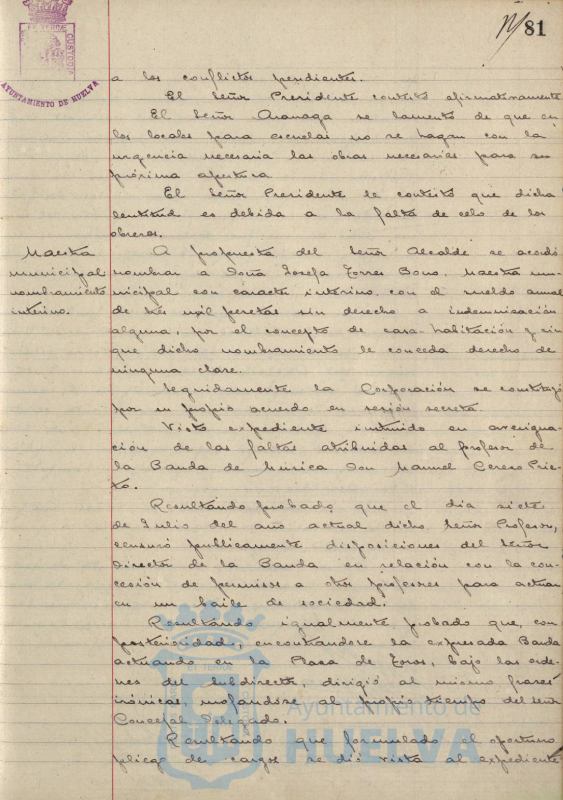 81
CUSTODIA
AYUNTAMIENTO DE HUELVA
a los conflictos pendientes.
El Señor Presidente contestó afirmativamente
El Señor Aranaga se lamenta de que en
los locales para escuelas no se hagan con la
urgencia necesaria las obras necesarias para su
próxima apertura
El Señor Presidente le contestó que dicha
lentitud es debida a la falta de celo de los
obreros.
Maestra
municipal
nombramiento
interino.
A propuesta del Señor Alcalde se acordó
nombrar a Doña Josefa Torres Bono, Maestra mu-
nicipal con caracter interino, con el sueldo anual
de tres mil pesetas sin derecho a indemnización
alguna, por el concepto de casa-habitación y sin
que dicho nombramiento le conceda derecho de
ninguna clase.
Seguidamente la Corporación se constituyó
por su propio acuerdo en sesión secreta.
Visto expediente instruido en averigua-
ción de las faltas atribuidas al profesor de
la Banda de Música Don Manuel Cerezo Prie-
to.
Resultando probado que el día siete
de Julio del año actual dicho Señor Profesor,
censuró publicamente disposiciones del Señor
Director de la Banda en relación con la con-
cesión de permisos a otros profesores para actuar
en un baile de sociedad.
Resultando igualmente probado que, con
posterioridad, encontrandose la expresada Banda
actuando en la Plaza de Toros, bajo las orde-
nes del Subdirector, dirigió al mismo frases
irónicas, mofandose al propio tiempo del Señor
Concejal Delegado.
Resultando que formulado el oportuno
pliego de cargos se dió vista al expediente
Ayuntamiento de
HUELVA